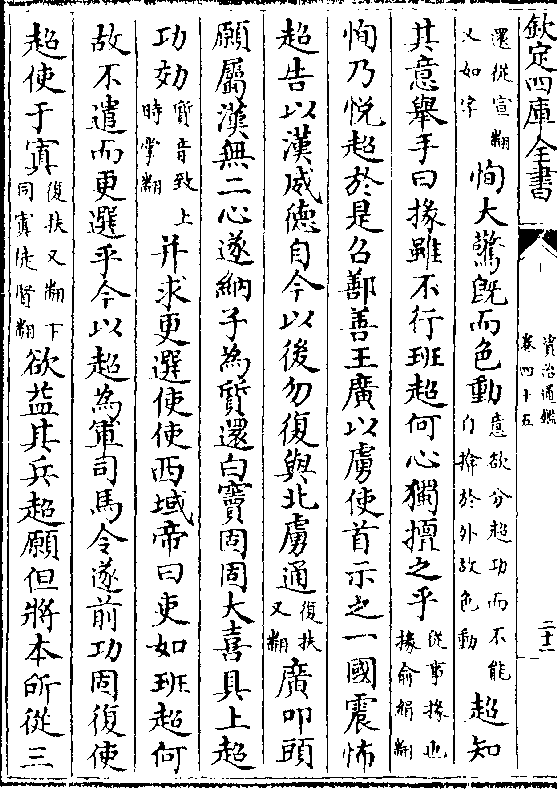 欽定四庫全書
資治通鑑
卷四十五
二十二
還從宣翻
又如字
恂大驚旣而色動
意欲分超功而不能
自揜於外故色動
超知
其意舉手曰掾雖不行班超何心獨擅之乎
從事掾也
掾俞絹翻
恂乃悦超於是召鄯善王廣以虜使首示之一國震怖
超告以漢威徳自今以後勿復與北虜通
復扶
又翻
廣叩頭
願屬漢無二心遂納子為質還白竇固固大喜具上超
功効
質音致上
時掌翻
并求更選使使西域帝曰吏如班超何
故不遣而更選乎今以超為軍司馬令遂前功固復使
超使于窴
復扶又翻下
同窴徒賢翻
欲益其兵超願但將本所從三